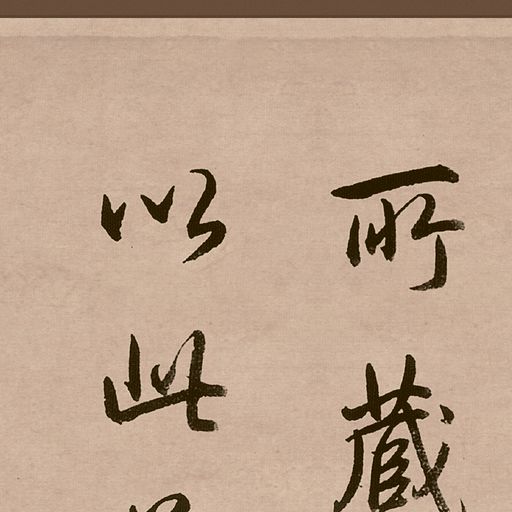 所藏
以此